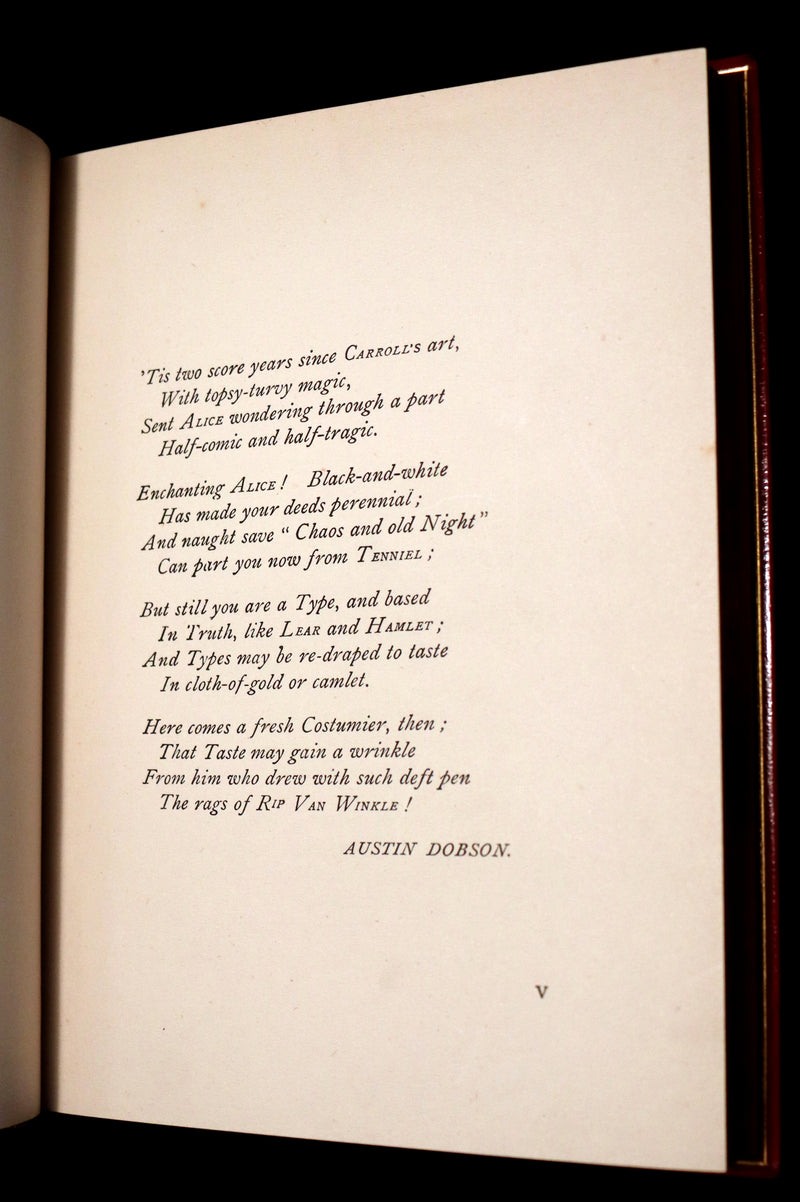 'Tis two score years since CARROLL'S art,
With topsy-turvy magic,
Sent ALICE wondering through a part
Half-comic and half-tragic.
Enchanting ALICE! Black-and-white
Has made your deeds perennial;
And naught save "Chaos and old Night"
Can part you now from TENNIEL;
But still you are a Type, and based
In Truth, like LEAR and HAMLET;
And Types may be re-draped to taste
In cloth-of-gold or camlet.
Here comes a fresh Costumier, then;
That Taste may gain a wrinkle
From him who drew with such deft pen
The rags of RIP VAN WINKLE!
AUSTIN DOBSON.
v